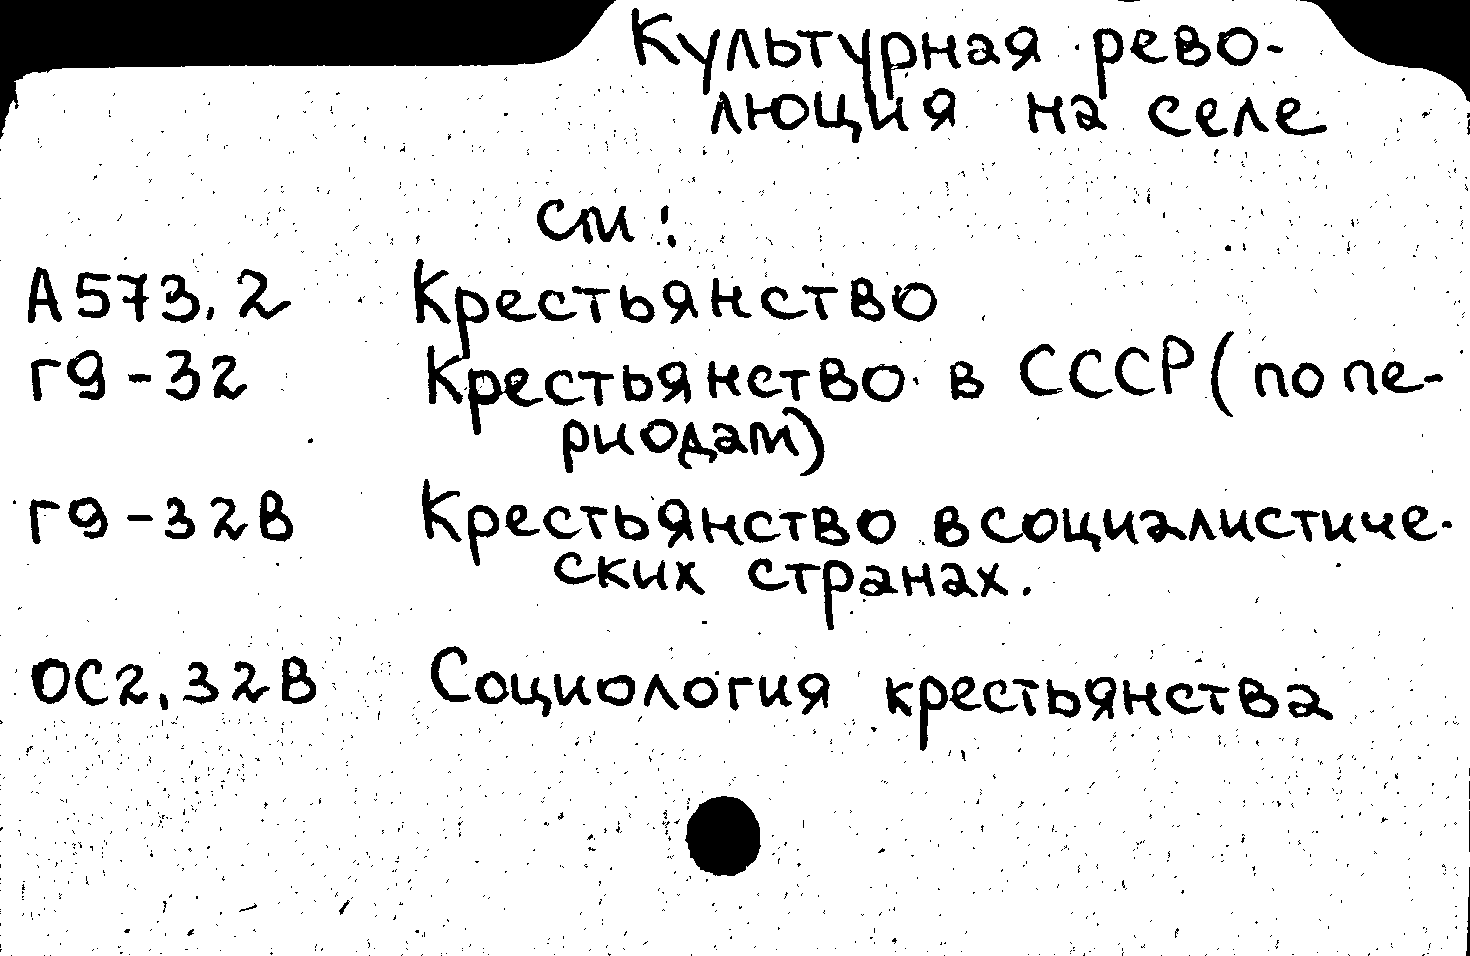 Культурная рево-
люция на селе
см:
А573.2 Крестьянство
Г9-32 Крестьянство в СССР (по пе-
риодам)
Г9-32В Крестьянство в социалистиче-
ских странах.
ОС2.32В Социология крестьянства